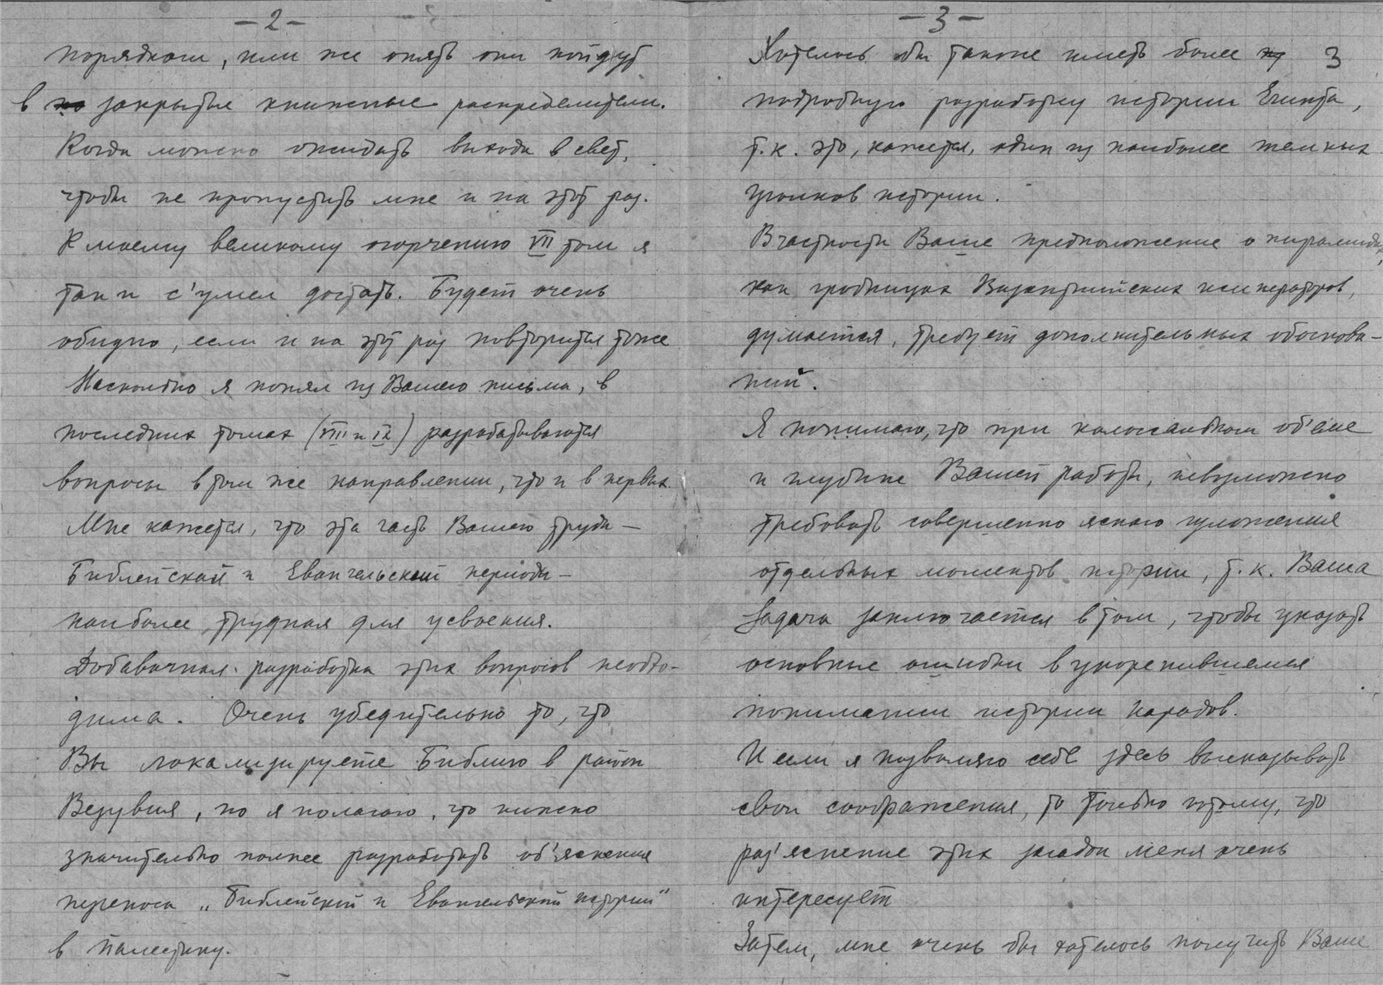 – 2 –
порядком, или же опять они пойдут
в закрытые книжные распределители.
Когда можно ожидать выхода в свет,
чтобы не пропустить мне и на этот раз.
К моему великому огорчению VII том я
так и с'умел достать. Будет очень
обидно, если и на этот раз повторится тоже
Насколько я понял из Вашего письма, в
последних томах (VIII и IX) разрабатываются
вопросы в том же направлении, что и в первых.
Мне кажется, что эта часть Вашего труда –
Библейский и Евангельский периоды –
наиболее трудная для усвоения.
Добавочная разработка этих вопросов необхо-
дима. Очень убедительно то, что
Вы локализируете Библию в район
Везувия, но я полагаю, что нужно
значительно полнее разработать об'яснения
переноса „Библейской и Евангельской истории"
в Палестину.
– 3 –
3
Хотелось бы также иметь более
подробную разработку истории Египта,
т.к. это, кажется, один из наиболее темных
уголков истории.
В частности Ваше предположение о пирамидах,
как гробницах Византийских императоров,
думается, требует дополнительных обоснова-
ний.
Я понимаю, что при колоссальном об'еме
и глубине Вашей работы, невозможно
требовать совершенно ясного изложения
отдельных моментов истории, т.к. Ваша
задача заключается в том, чтобы указать
основные ошибки в укоренившемся
понимании истории народов.
И если я позволяю себе здесь высказывать
свои соображения, то только потому, что
раз'яснение этих загадок меня очень
интересует
Затем, мне очень бы хотелось получить Ваше